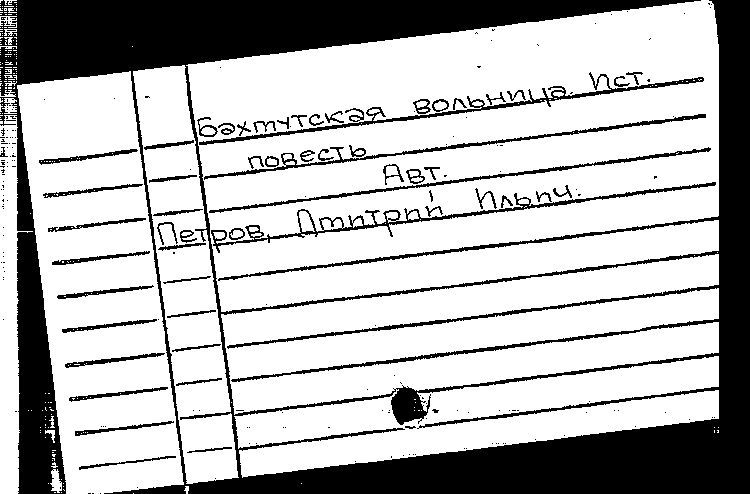 Бахмутская вольница. Ист.
повесть
Авт.
Петров, Дмитрий Ильич.